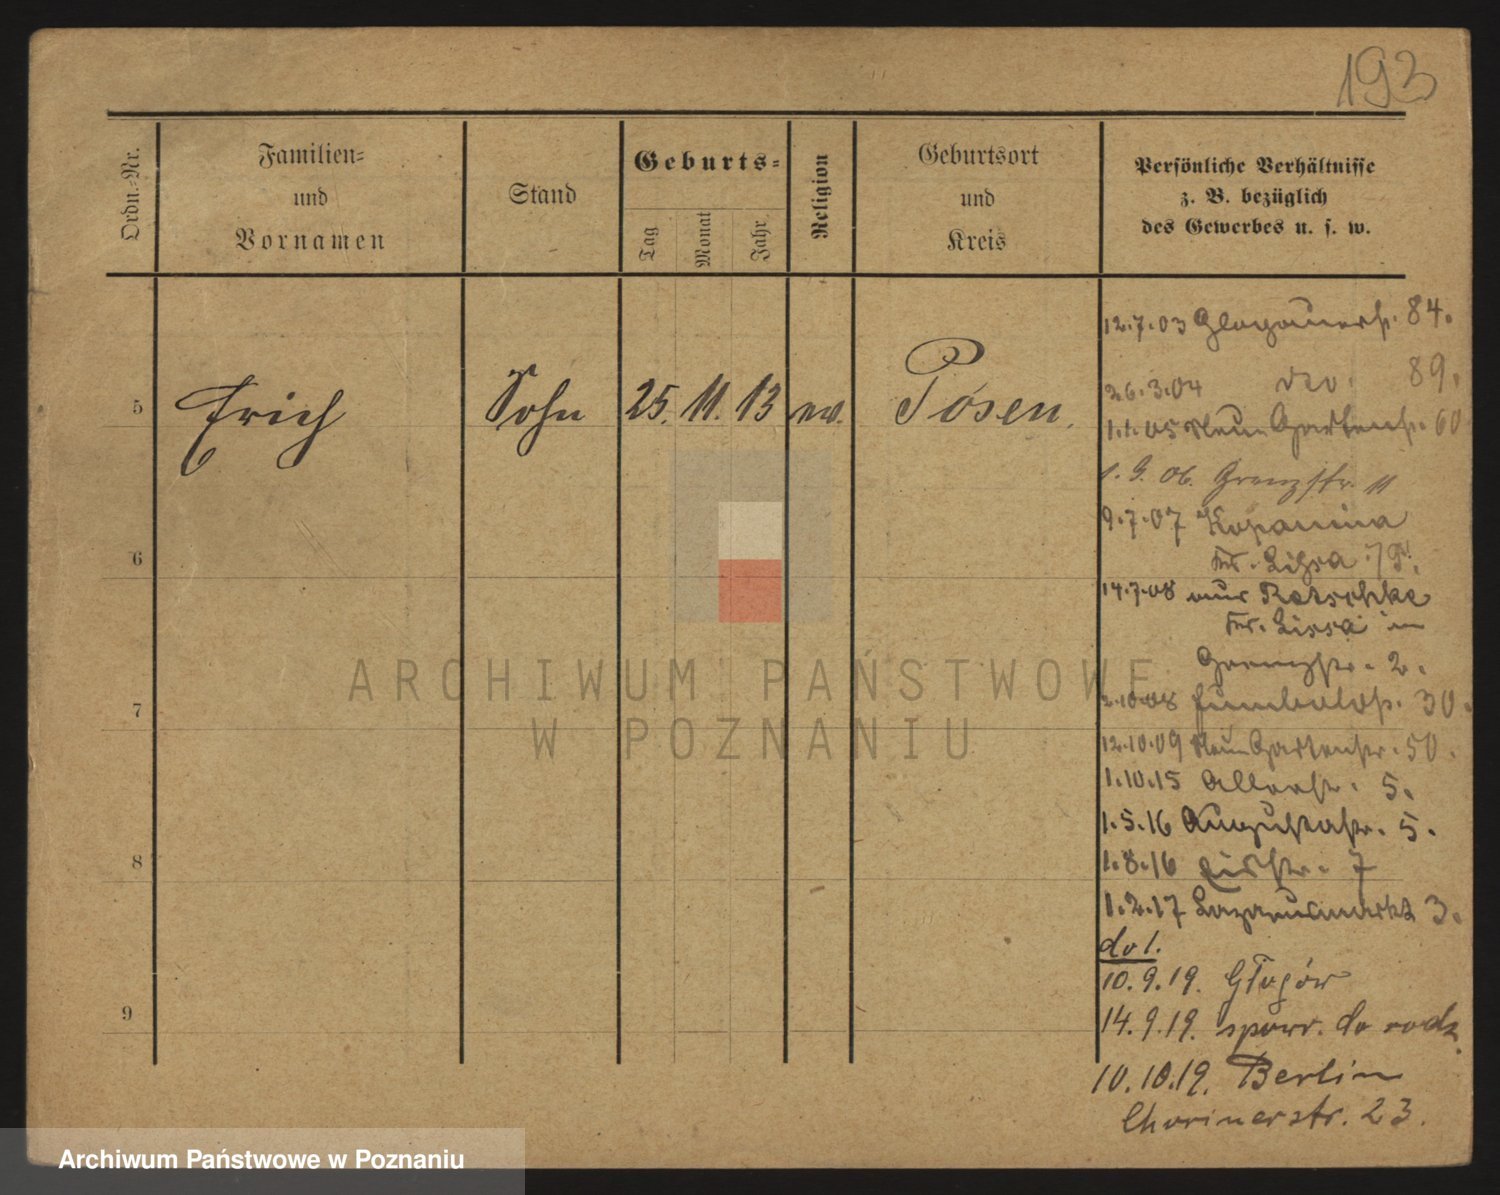 193
Ordn.-Nr.
Familien-
und
Vornamen
Stand
Geburts-
Tag
Monat
Jahr
Religion
Geburtsort
und
Kreis
Persönliche Verhältnisse
z. B. bezüglich
des Gewerbes u. s. w.
12.7.03 Glogauerstr. 84.
26.3.04 89.
5 Erich Sohn 25. 11. 13 ev. Posen.
1.1.05 Neue Gartenstr. 60
1. 9. 06. Grenzstr. 11
9.7.07 Kopanina
6
14.7.08 Ratschke
Kr. Lissa
Grenzstr. 2.
7
2.10.08 30.
12.10.09 Neue Gartenstr. 50.
1.10.15 5.
1.5.16 Augustastr. 5.
8
1.8.16 7
1.2.17 Lazarusmarkt 3.
do 1.
10.9.19. Głogów
9
14.9.19. spowr. do rodz.
10.10.19. Berlin
Chorinerstr. 23.
ARCHIWUM PAŃSTWOWE
W POZNANIU
Archiwum Państwowe w Poznaniu